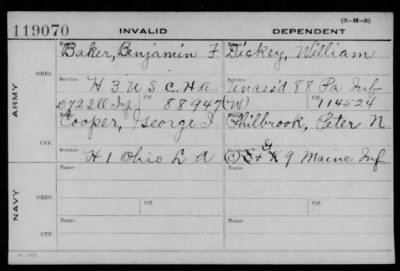 (3-H-5)
119070 INVALID DEPENDENT
Name Baker, Benjamin F Dickey, William
ORIG.
Service H 3 U S C. H. A. Unass'd 88 Pa Inf
D 72 Ill Inf Ctf. 88947 (W) 114524
ARMY
Cooper, George I Philbrook, Peter N
CTF.
Service H 1 Ohio L A G 9 Maine Inf
Name Name
ORIG.
Service Ctf. Service Ctf.
NAVY
Name Name
CTF.
Service Service